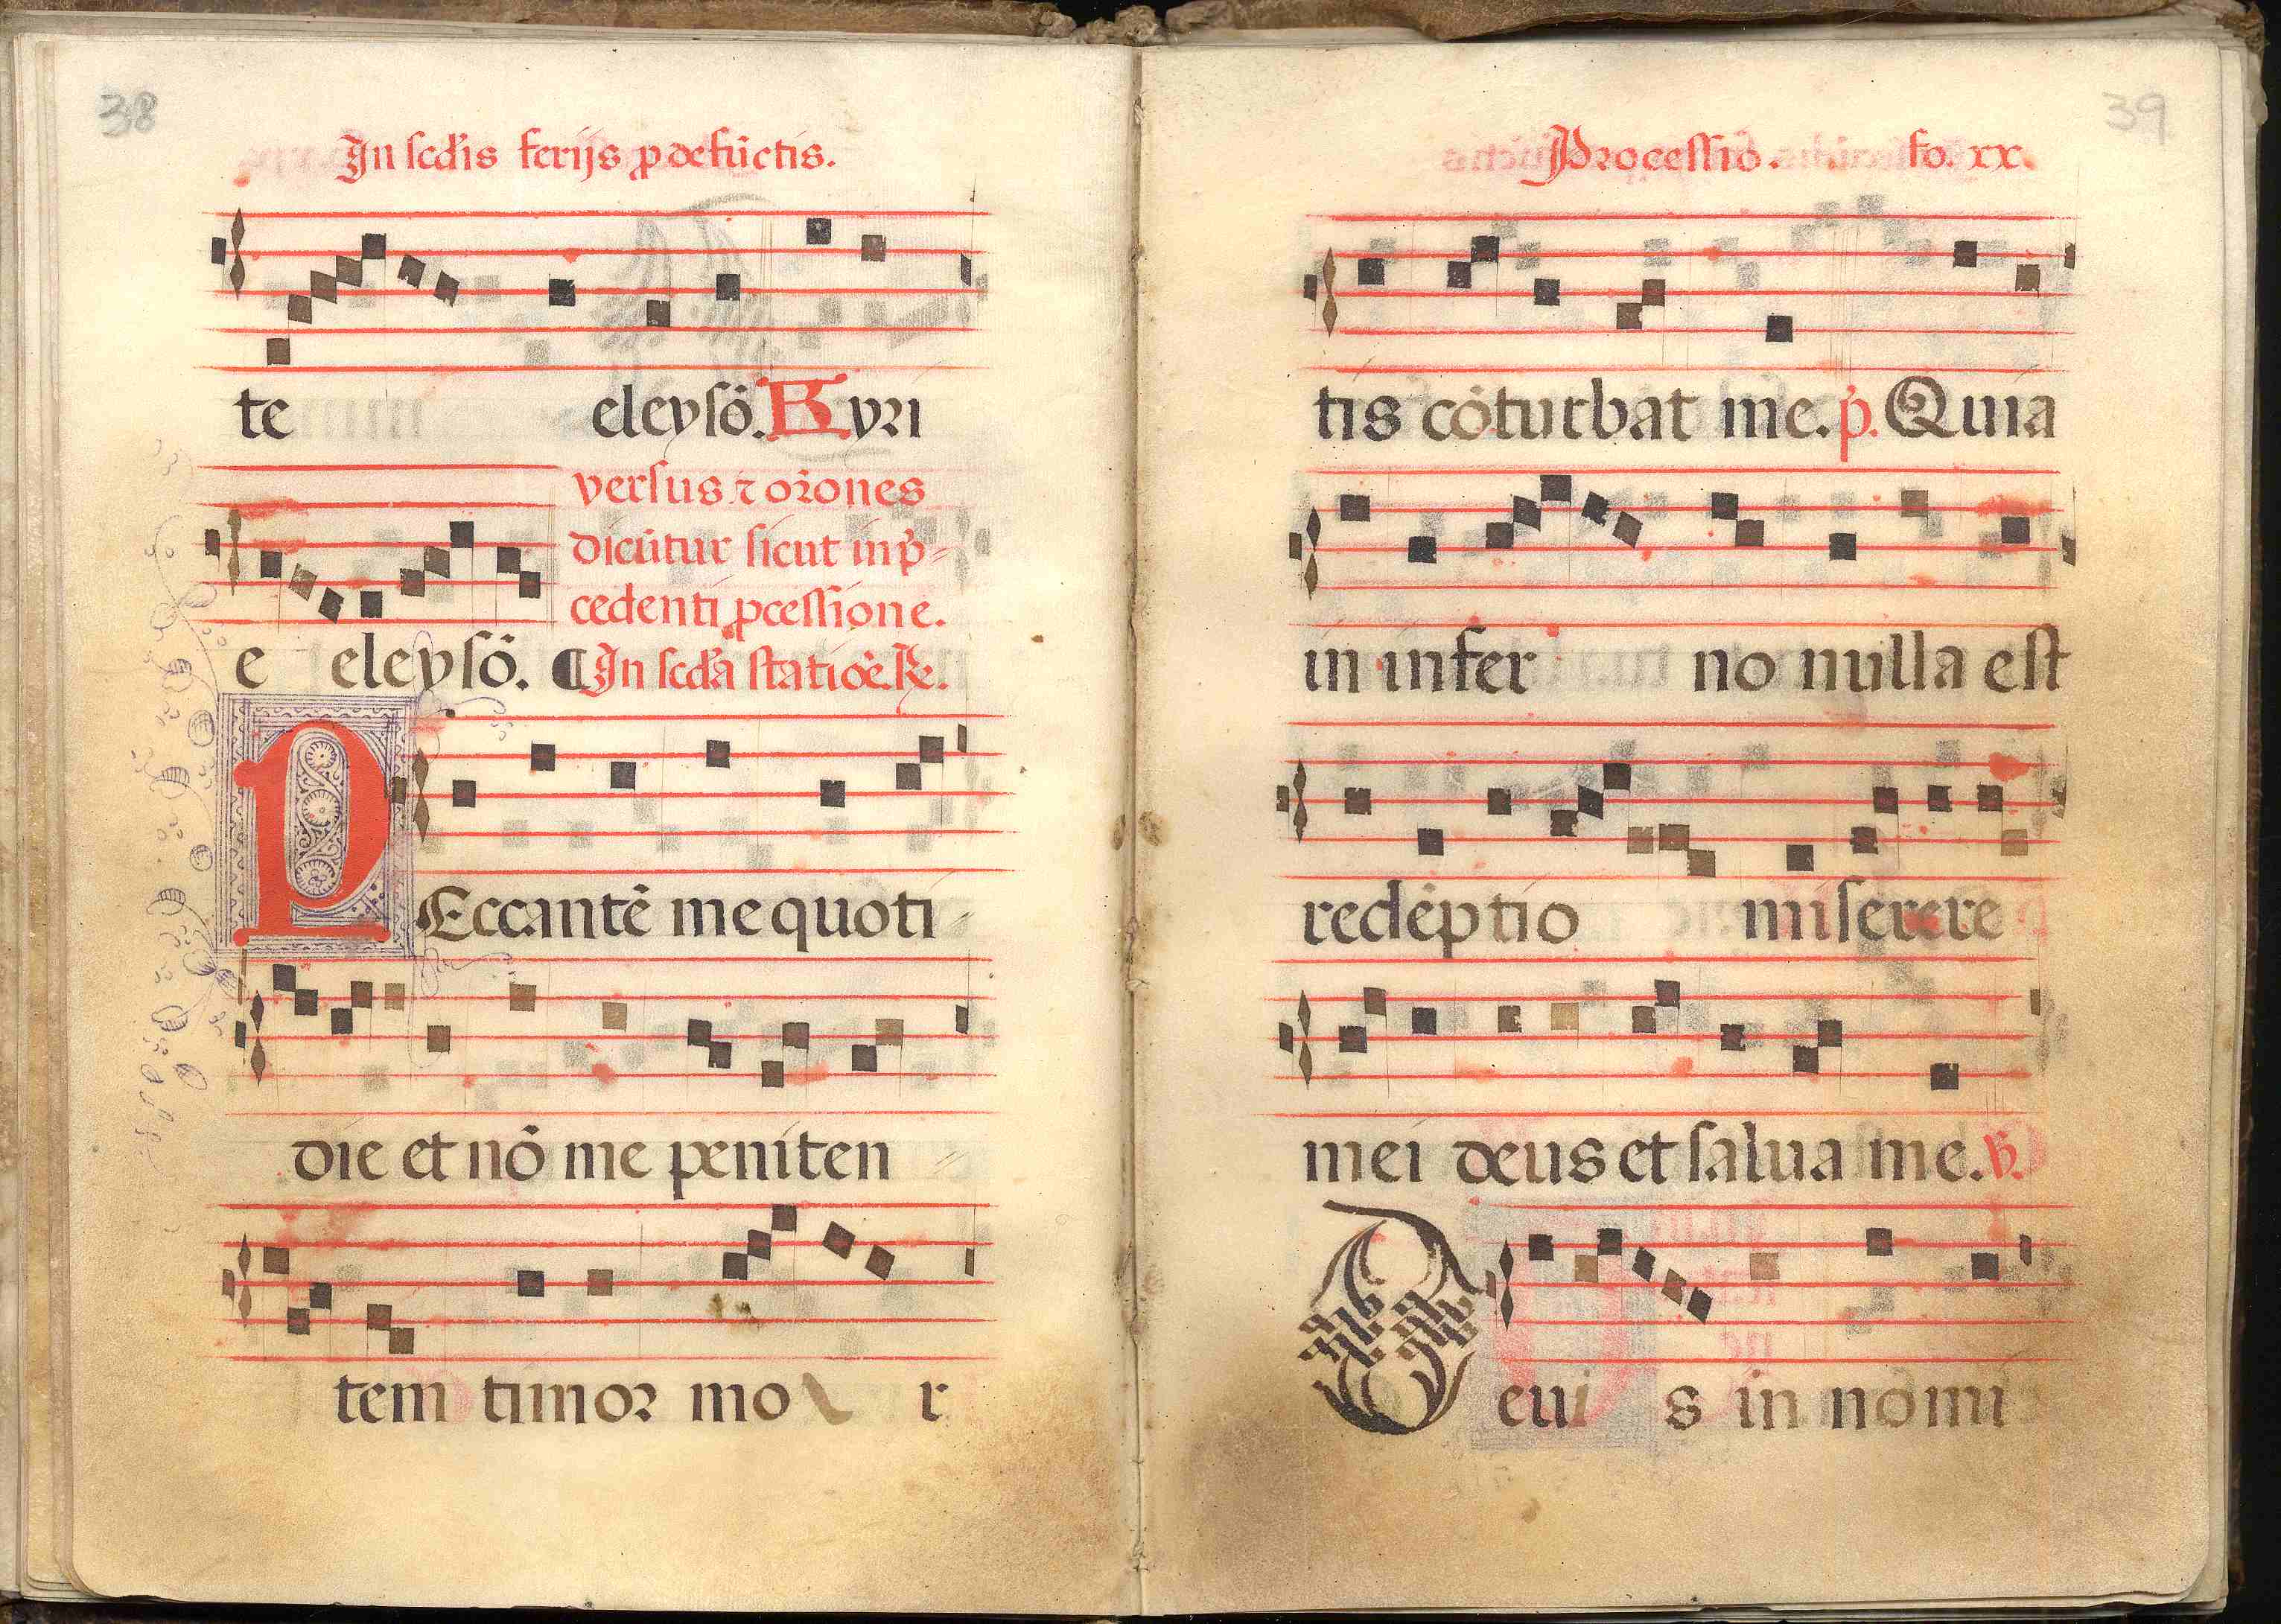 38
In scd̄is ferijs ꝓ defūctis.
te eleysō. Kyri
versus ⁊ orōnes
dicūtur sicut in p̄-
cedenti ꝓcessione.
e eleysō. ¶ In scd̄a statiōe. ℟.
PEccantē me quoti-
die et nō me peniten-
tem timor mo r
39
Processio. fo. xx.
tis cōturbat me. p̄. Quia
in infer no nulla est
redēptio miserere
mei deus et salua me. ℣.
Deui s in nomi